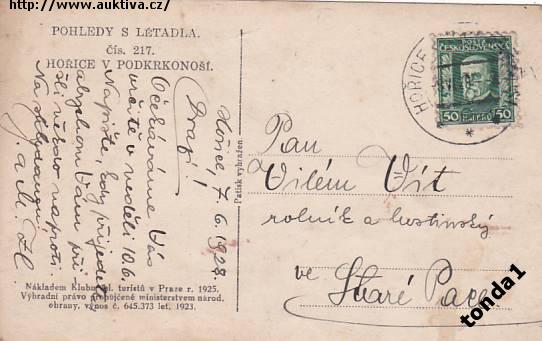 http://www.auktiva.cz/
POHLEDY S LETADLA.
čís. 217.
HOŘICE V PODKRKONOŠÍ.
Hořice, 7. 6. 1928.
Drazí!
Očekáváme Vás
určitě v neděli 10. 6.
Napište, kdy přijedete
abychom Vám při-
šli někdo naproti.
Na shledanou
J. a M.
Nákladem Klubu čsl. turistů v Praze r. 1925.
Výhradní právo propůjčené ministerstvem národ.
obrany, výnos č. 645.373 let. 1923.
Patisk vyhražen
HOŘICE
POŠTA
ČESKOSLOVENSKO
50 HALÉŘŮ 50
Pan
Vilém Vít
rolník a hostinský
ve Staré Pace
tonda1